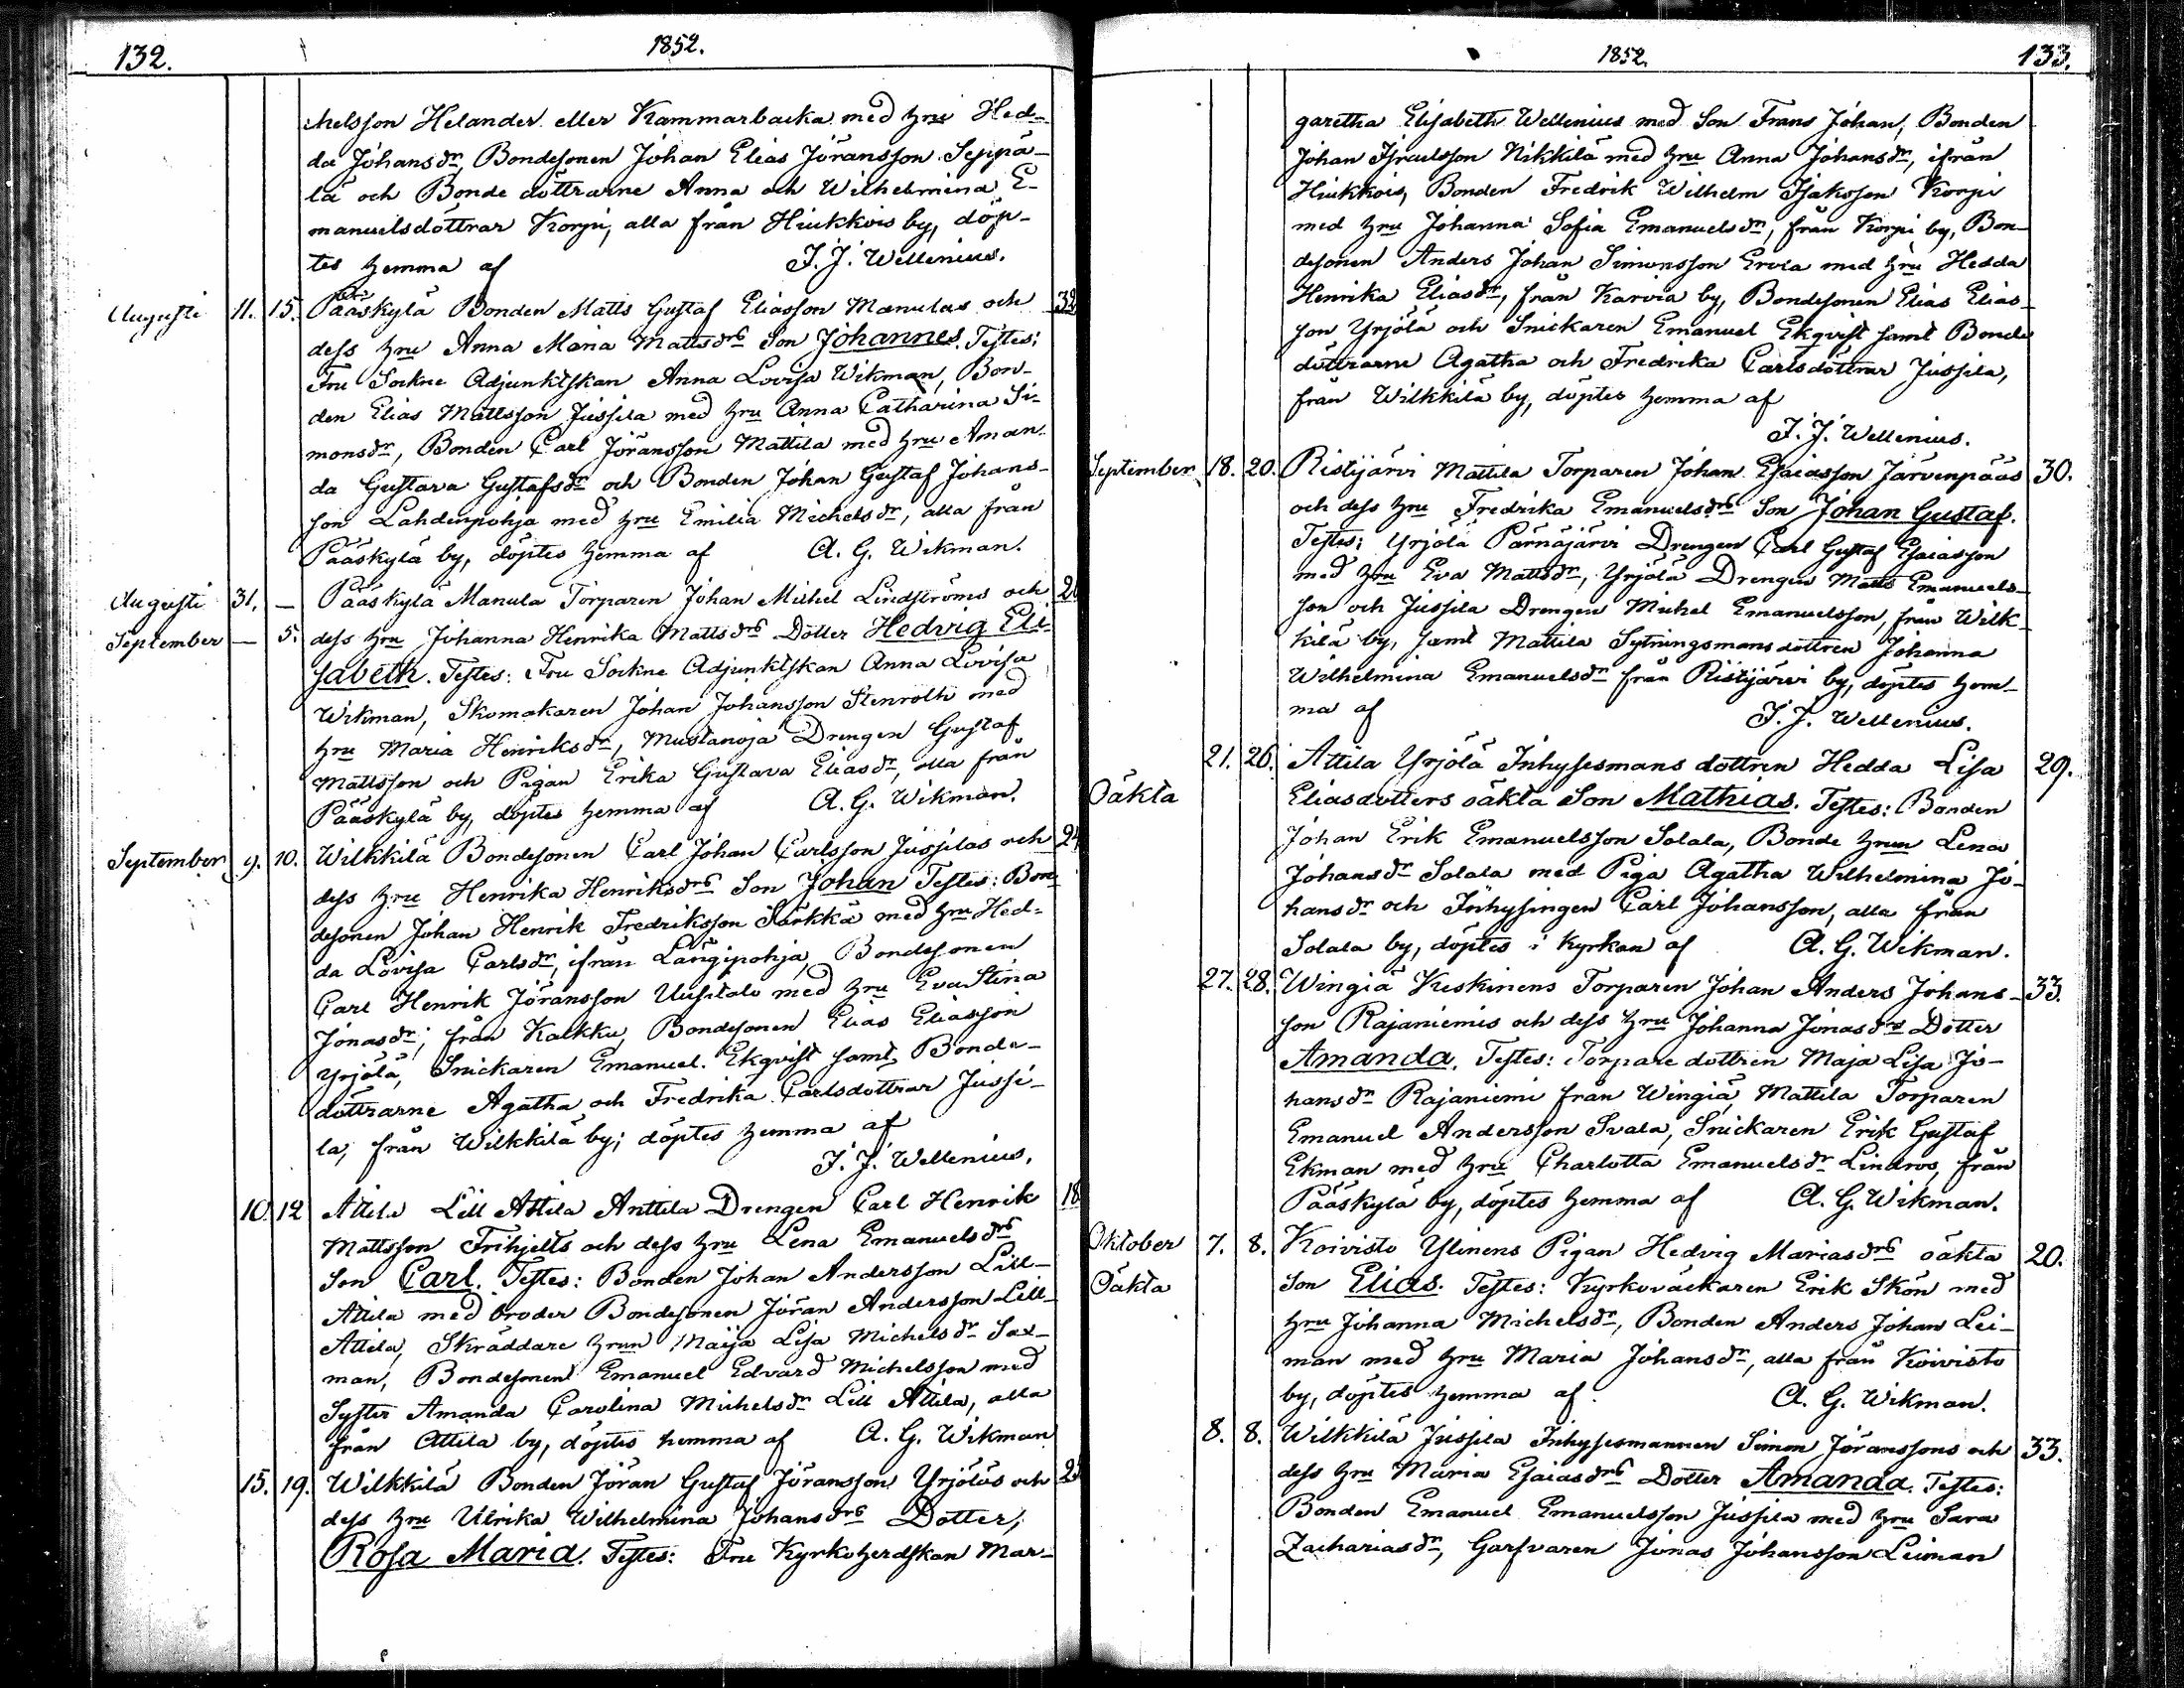 132.
1852.
chelsson Helander eller Kammarbacka med hru Hed-
da Johansdr, Bondesonen Johan Elias Jöransson Seppä-
lä och Bonde döttrarne Anna och Wilhelmina E-
manuelsdöttrar Korpi, alla från Hiukkois by, döp-
tes hemma af J. J. Wellenius.
Augusti 11. 15. Pääskylä Bonden Matts Gustaf Eliasson Manulas och 32
dess hru Anna Maria Mattsdrs Son Johannes. Testes:
Fru Sockne Adjunktskan Anna Lovisa Wikman, Bon-
den Elias Mattsson Jussila med hru Anna Catharina Si-
monsdr, Bonden Carl Jöransson Mattila med hru Aman-
da Gustava Gustafsdr och Bonden Johan Gustaf Johans-
son Lahdenpohja med hru Emilia Michelsdr, alla från
Pääskylä by, döptes hemma af A. G. Wikman.
Augusti 31. — Pääskylä Manula Torparen Johan Michel Lindströms och
September — 5. dess hru Johanna Henrika Mattsdrs Dotter Hedvig Eli-
sabeth. Testes: Fru Sockne Adjunktskan Anna Lovisa
Wikman, Skomakaren Johan Johansson Stenroth med
hru Maria Henriksdr, Mustanoja Drengen Gustaf
Mattsson och Pigan Erika Gustava Eliasdr, alla från
Pääskylä by, döptes hemma af A. G. Wikman.
September 9. 10. Wilkkilä Bondesonen Carl Johan Carlsson Jussilas och
dess hru Henrika Henriksdrs Son Johan Testes: Bon-
desonen Johan Henrik Fredriksson Särkkä med hru Hed-
da Lovisa Carlsdr, ifrån Långipohja, Bondesonen
Carl Henrik Jöransson Uusitalo med hru Eva Stina
Jonasdr, från Kalkku, Bondesonen Elias Eliasson
Yrjölä, Snickaren Emanuel Ekqvist samt Bonde-
döttrarne Agatha och Fredrika Carlsdöttrar Jussi-
la, från Wilkkilä by; döptes hemma af
J. J. Wellenius.
10. 12 Attila Lill Attila Anttila Drengen Carl Henrik 18
Mattsson Frihjelts och dess hru Lena Emanuelsdrs
Son Carl. Testes: Bonden Johan Andersson Lill-
Attila med broder Bondesonen Jöran Andersson Lill-
Attila, Skräddare hrun Maija Lisa Michelsdr Sax-
man, Bondesonen Emanuel Edvard Michelsson med
Syster Amanda Carolina Michelsdr Lill Attila, alla
från Attila by, döptes hemma af A. G. Wikman
15. 19. Wilkkilä Bonden Jöran Gustaf Jöransson Yrjöläs och
dess hru Ulrika Wilhelmina Johansdrs Dotter,
Rosa Maria. Testes: Fru Kyrkoherdskan Mar-
1852.
133.
garetha Elisabeth Wellenius med Son Frans Johan, Bonden
Johan Israelsson Nikkilä med hru Anna Johansdr, ifrån
Hiukkois, Bonden Fredrik Wilhelm Isaksson Korpi
med hru Johanna Sofia Emanuelsdr, från Korpi by, Bon-
desonen Anders Johan Simonsson Ervia med hru Hedda
Henrika Eliasdr, från Karvia by, Bondesonen Elias Elias-
son Yrjölä och Snickaren Emanuel Ekqvist samt Bonde
döttrarne Agatha och Fredrika Carlsdöttrar Jussila,
från Wilkkilä by, döptes hemma af
J. J. Wellenius.
September 18. 20. Ristijärvi Mattila Torparen Johan Esaiasson Järvenpääs 30.
och dess hru Fredrika Emanuelsdrs Son Johan Gustaf.
Testes; Yrjölä Pärnäjärvi Drengen Carl Gustaf Esaiasson
med hru Eva Mattsdr, Yrjölä Drengen Matts Emanuels-
son och Jussila Drengen Michel Emanuelsson, från Wilk-
kilä by, samt Mattila Sytningsmans dottren Johanna
Wilhelmina Emanuelsdr från Ristijärvi by, döptes hem-
ma af J. J. Wellenius.
21. 26. Attila Yrjölä Inhysesmans dottren Hedda Lisa 29.
Oäkta Eliasdotters oäkta Son Mathias. Testes: Bonden
Johan Erik Emanuelsson Solala, Bonde hrun Lena
Johansdr Solala med Piga Agatha Wilhelmina Jo-
hansdr och Inhysingen Carl Johansson, alla från
Solala by, döptes i Kyrkan af A. G. Wikman.
27. 28. Wingiä Keskinens Torparen Johan Anders Johans- 33.
son Rajaniemis och dess hru Johanna Jonasdrs Dotter
Amanda. Testes: Torpare dottren Maja Lisa Jo-
hansdr Rajaniemi från Wingiä, Mattila Torparen
Emanuel Andersson Svala, Snickaren Erik Gustaf
Ekman med hru Charlotta Emanuelsdr Lindros, från
Pääskylä by, döptes hemma af A. G. Wikman.
Oktober 7. 8. Koivisto Ylinens Pigan Hedvig Mariasdrs oäkta 20.
Oäkta son Elias. Testes: Kyrkoväckaren Erik Skön med
hru Johanna Michelsdr, Bonden Anders Johan Lei-
man med hru Maria Johansdr, alla från Koivisto
by, döptes hemma af A. G. Wikman.
8. 8. Wilkkilä Jussila Inhysesmannen Simon Jöranssons och 33.
dess hru Maria Esaiasdrs Dotter Amanda. Testes:
Bonden Emanuel Emanuelsson Jussila med hru Sara
Zachariasdr, Garfvaren Jonas Johansson Leiman